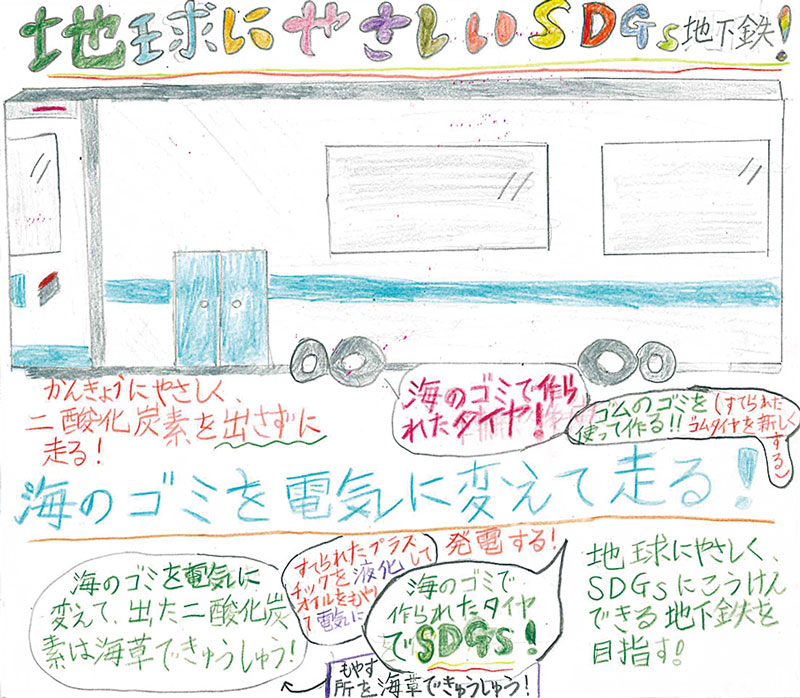 地球にやさしいSDGs地下鉄!
かんきょうにやさしく、
二酸化炭素を出さずに
走る!
海のゴミで作ら
れたタイヤ!
ゴムのゴミを
使って作る!!
(すてられた
ゴムタイヤを新しく
する)
海のゴミを電気に変えて走る!
海のゴミを電気に
変えて、出た二酸化炭
素は海草できゅうしゅう!
すてられたプラス
チックを液化して
オイルをもやし
て電気に
発電する!
海のゴミで
作られたタイヤ
でSDGs!
もやす
所を海草できゅうしゅう!
地球にやさしく、
SDGsにこうけん
できる地下鉄を
目指す!